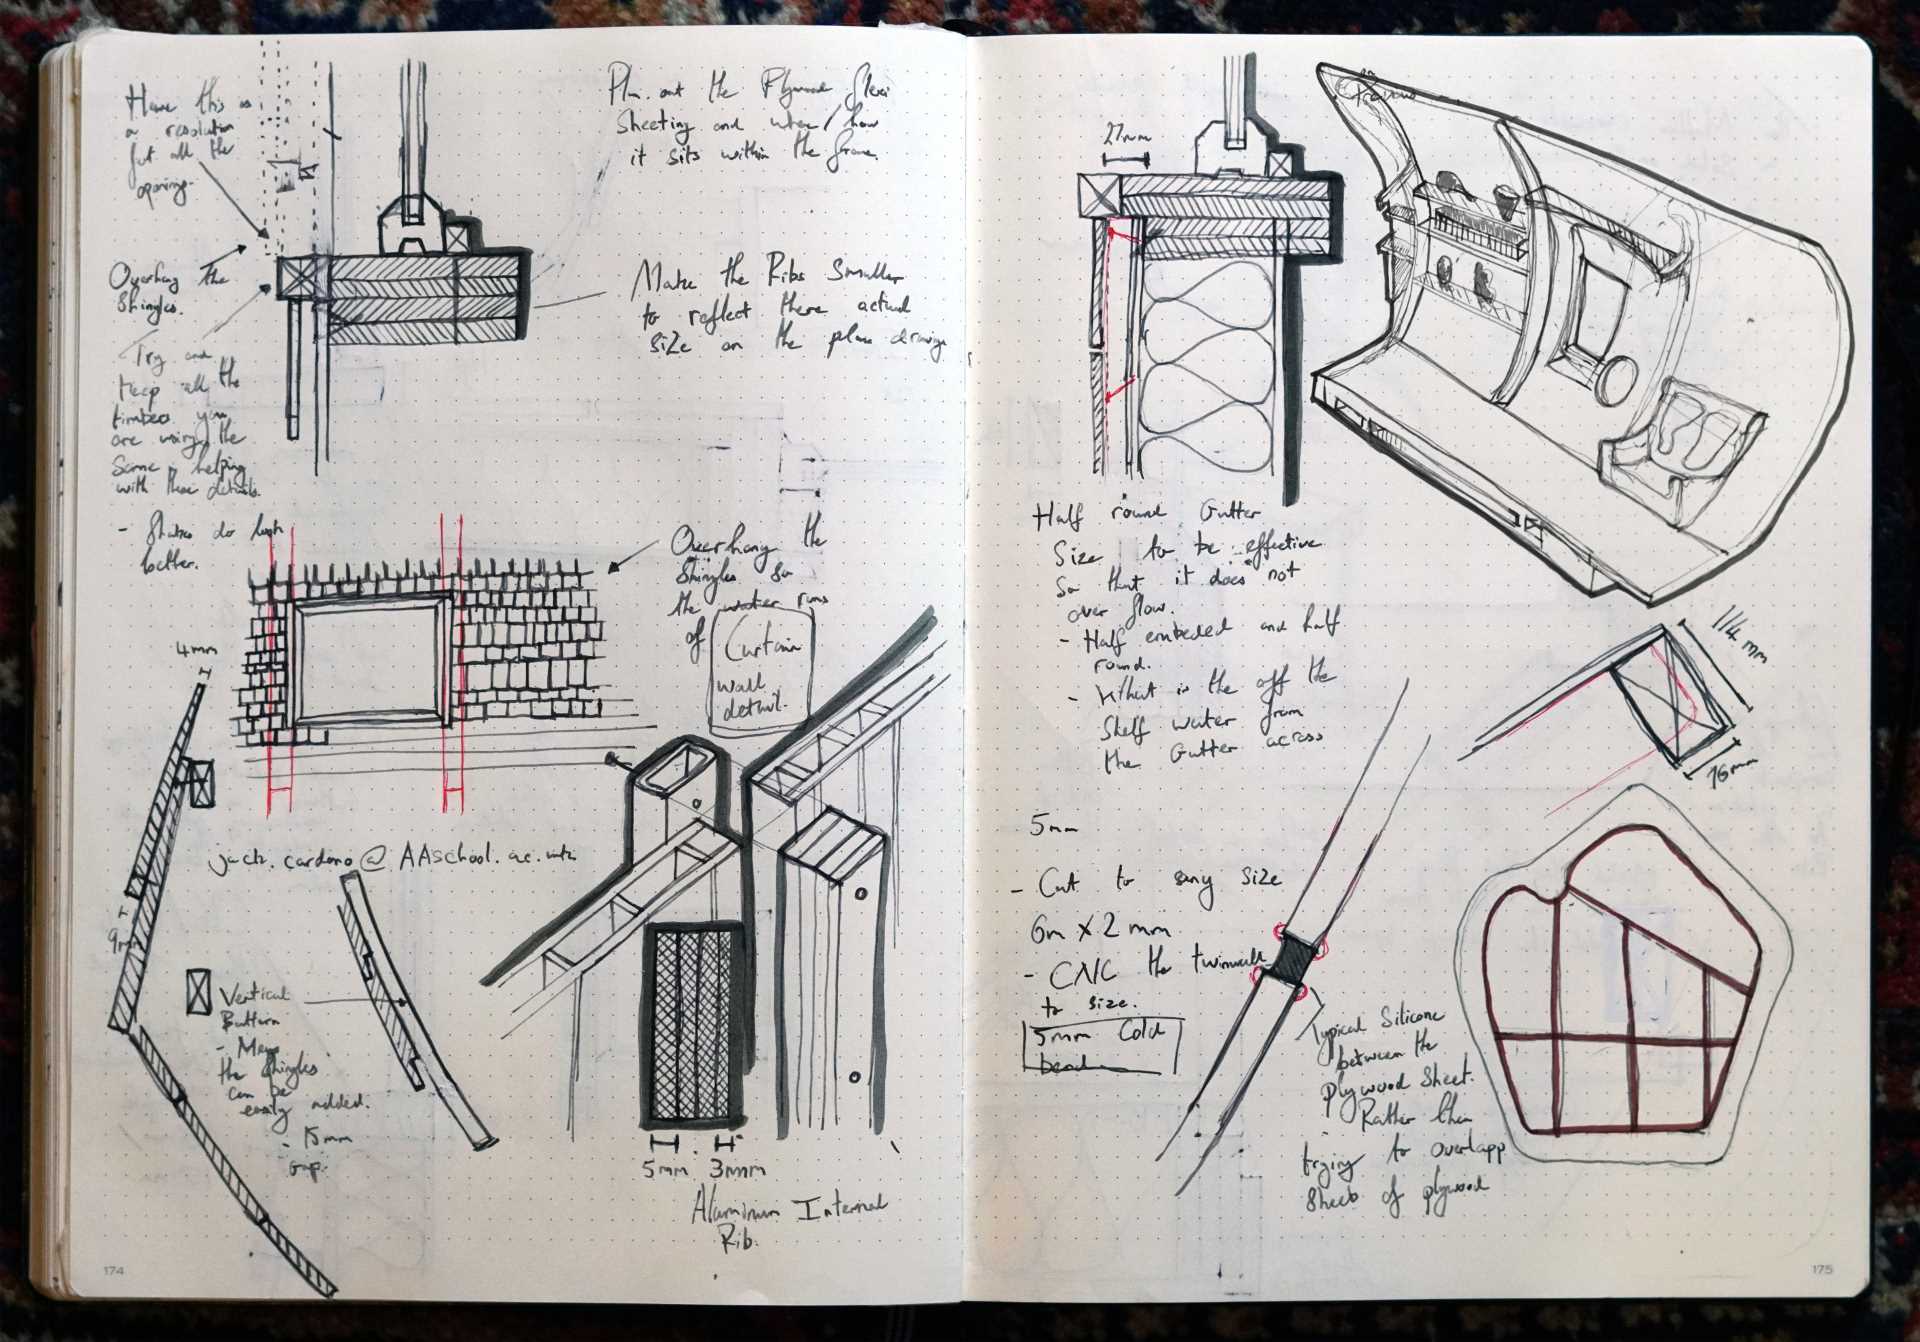 Have this as
a resolution
for all the
openings.
Overhang the
Shingles.
Try and
keep all the
timbers you
are using the
same, helping
with these details.
- Shakes do look
better.
Plan out the Plywood flexi
Sheeting and where/how
it sits within the frame.
Make the Ribs Smaller
to reflect there actual
Size on the plan drawings
Overhang the
Shingles so
the water runs
of
Curtain
wall
detail.
4mm
9mm
Vertical
Battern
the shingles
can be
easily added.
- 15mm
Gap.
5mm 3mm
Aluminum Internal
Rib.
174
27mm
Half round Gutter
Size to be effective
So that it does not
over flow.
- Half embeded and half
round.
- What is the off the
Shelf water from
the Gutter across
114mm
76mm
5mm
- Cut to any size
6m X 2mm
- CNC the twinwall
to size.
5mm Cold
bend
Typical Silicone
between the
plywood Sheet.
Rather then
trying to overlapp
Sheets of plywood
175